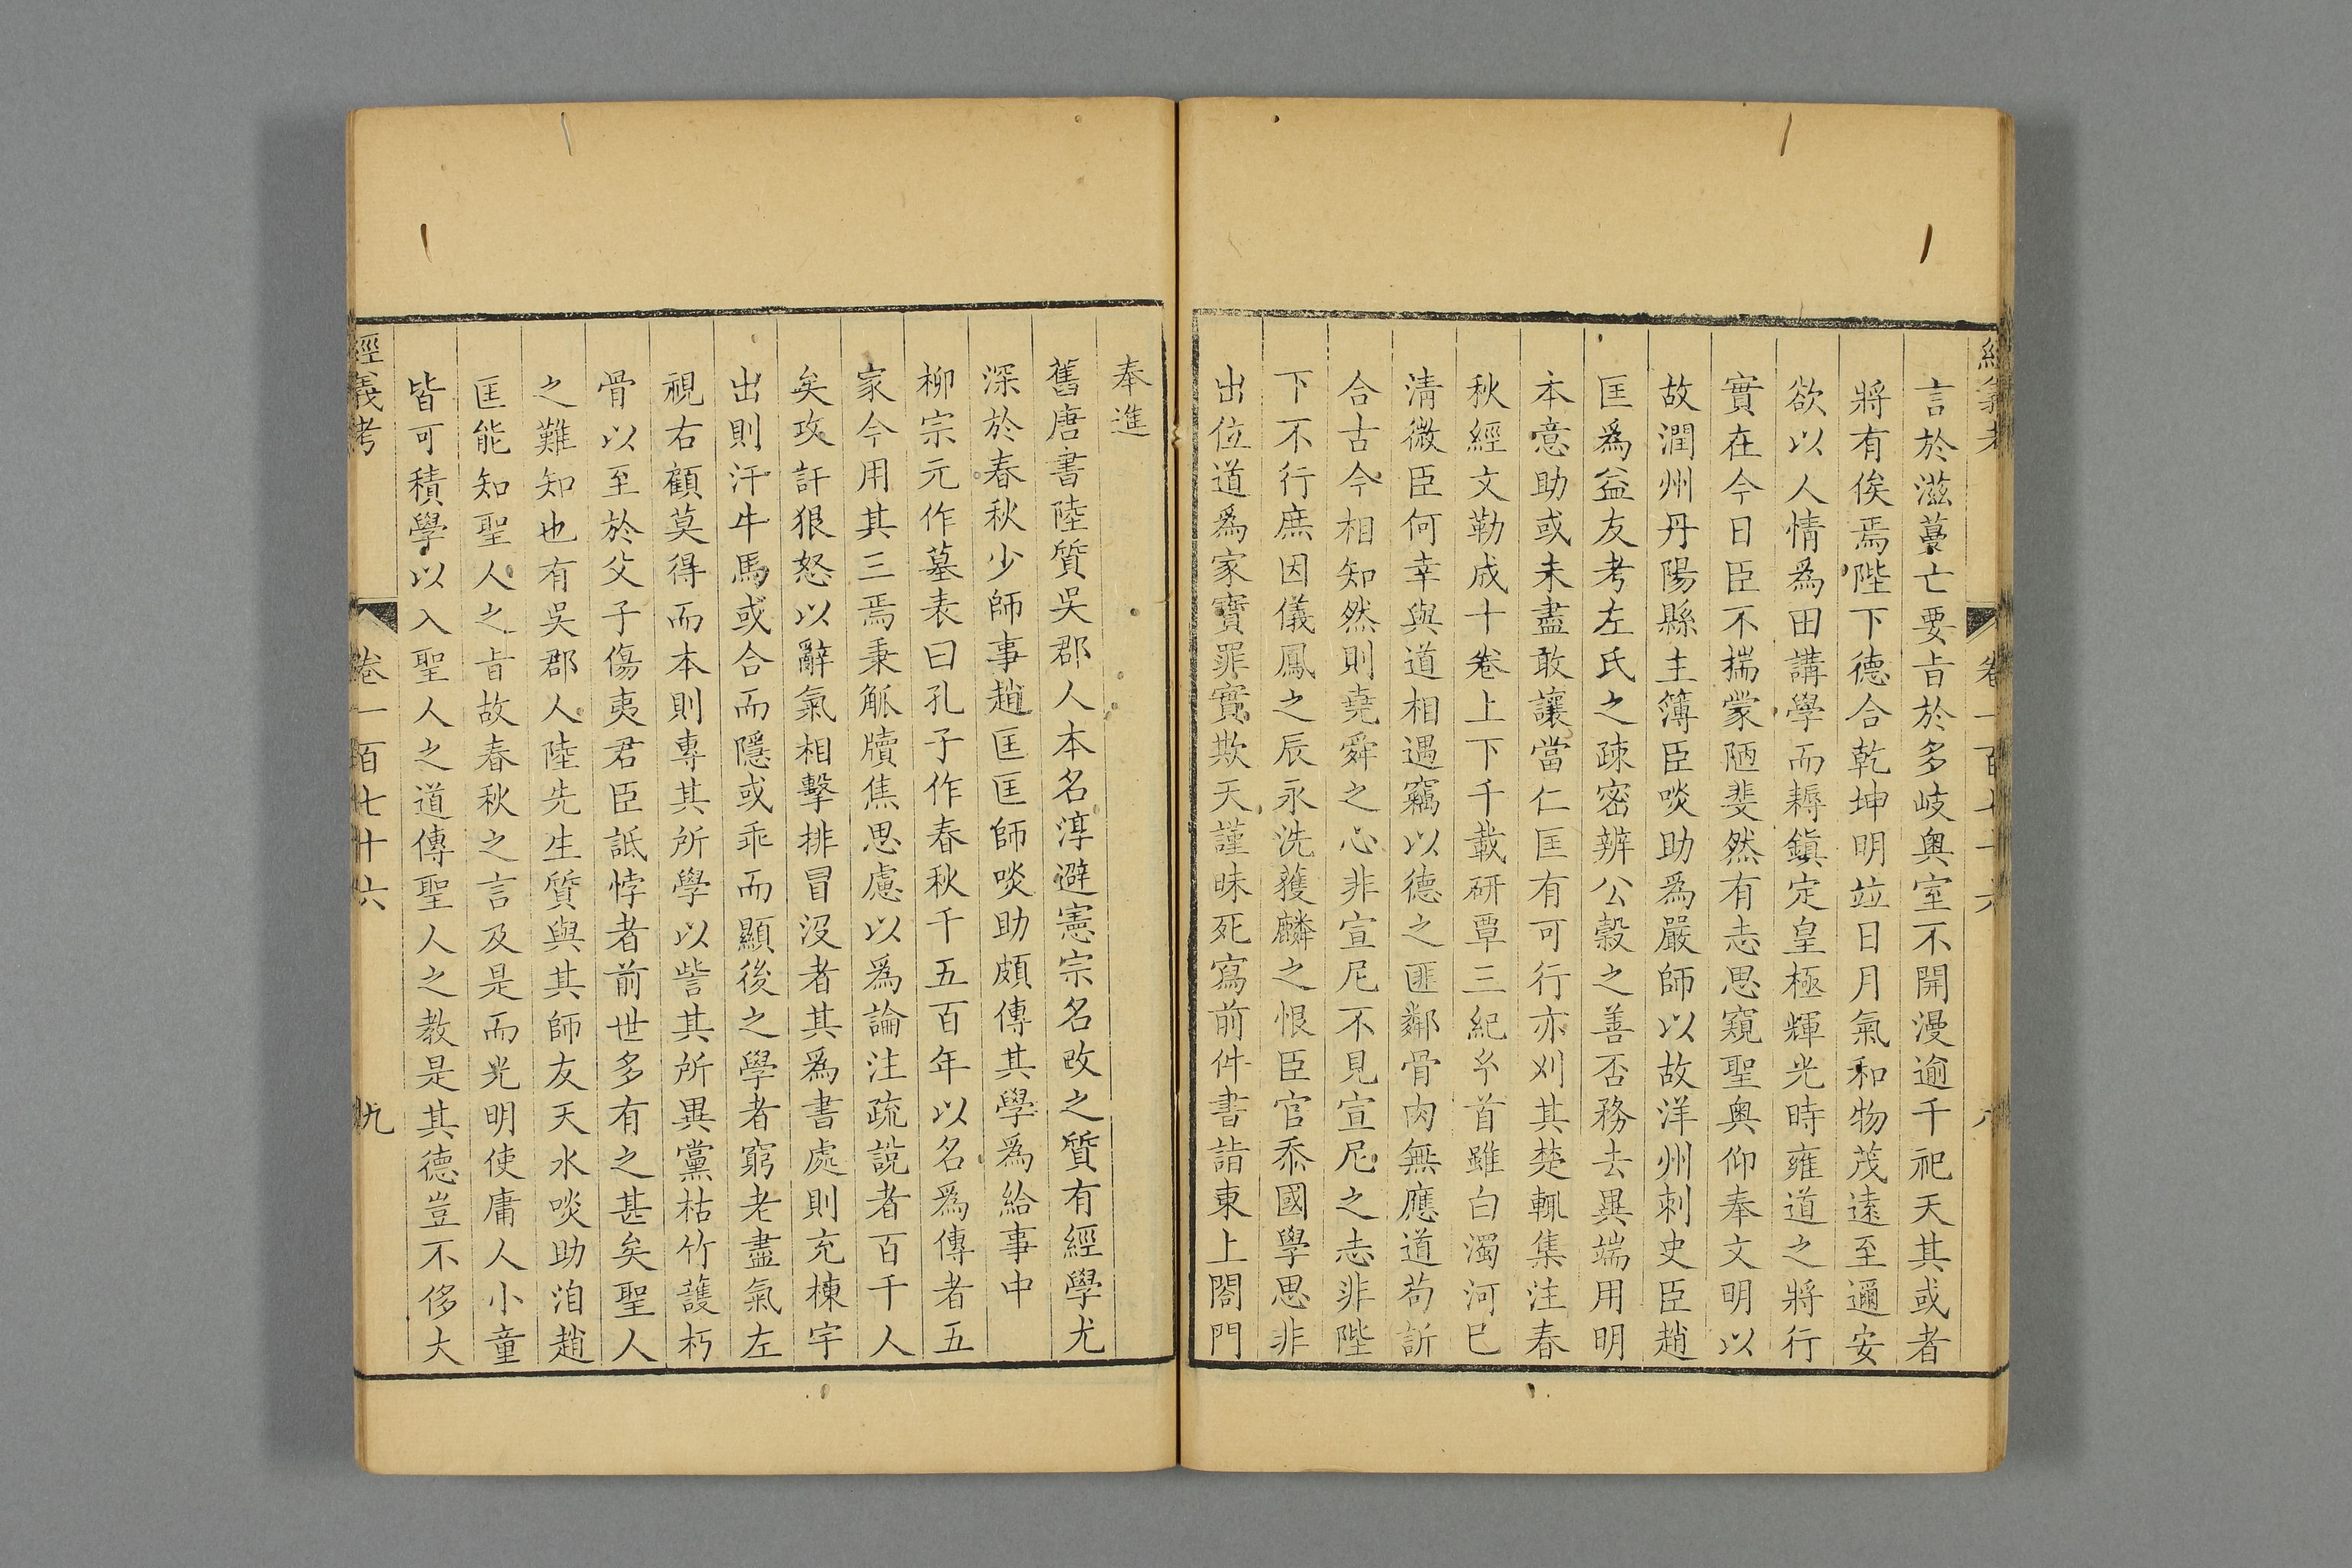 經義考 卷一百七十六 八
言於滋蔓亡要旨於多岐奥室不開漫逾千祀天其或者
將有俟焉陛下德合乾坤明竝日月氣和物茂遠至邇安
欲以人情爲田講學而耨鎮定皇極輝光時雍道之將行
實在今日臣不揣蒙陋斐然有志思窺聖奥仰奉文明以
故潤州丹陽縣主簿臣啖助爲嚴師以故洋州刺史臣趙
匡爲益友考左氏之疎密辨公穀之善否務去異端用明
本意助或未盡敢讓當仁匡有可行亦刈其楚輒集注春
秋經文勒成十卷上下千載研覃三紀元首雖白濁河已
清微臣何幸與道相遇竊以德之匪鄰骨肉無應道苟訢
合古今相知然則堯舜之心非宣尼不見宣尼之志非陛
下不行庶因儀鳳之辰永洗獲麟之恨臣官忝國學思非
出位道爲家寶罪實欺天謹昧死寫前件書詣東上閤門
奉進
舊唐書陸質吳郡人本名淳避憲宗名改之質有經學尤
深於春秋少師事趙匡匡師啖助頗傳其學爲給事中
柳宗元作墓表曰孔子作春秋千五百年以名爲傳者五
家今用其三焉秉觚牘焦思慮以爲論注疏說者百千人
矣攻訐狠怒以辭氣相擊排冒沒者其爲書處則充棟宇
出則汗牛馬或合而隱或乖而顯後之學者窮老盡氣左
視右顧莫得而本則專其所學以訾其所異黨枯竹護朽
骨以至於父子傷夷君臣詆悖者前世多有之甚矣聖人
之難知也有吳郡人陸先生質與其師友天水啖助洎趙
匡能知聖人之旨故春秋之言及是而光明使庸人小童
皆可積學以入聖人之道傳聖人之教是其德豈不侈大
經義考 卷一百七十六 九